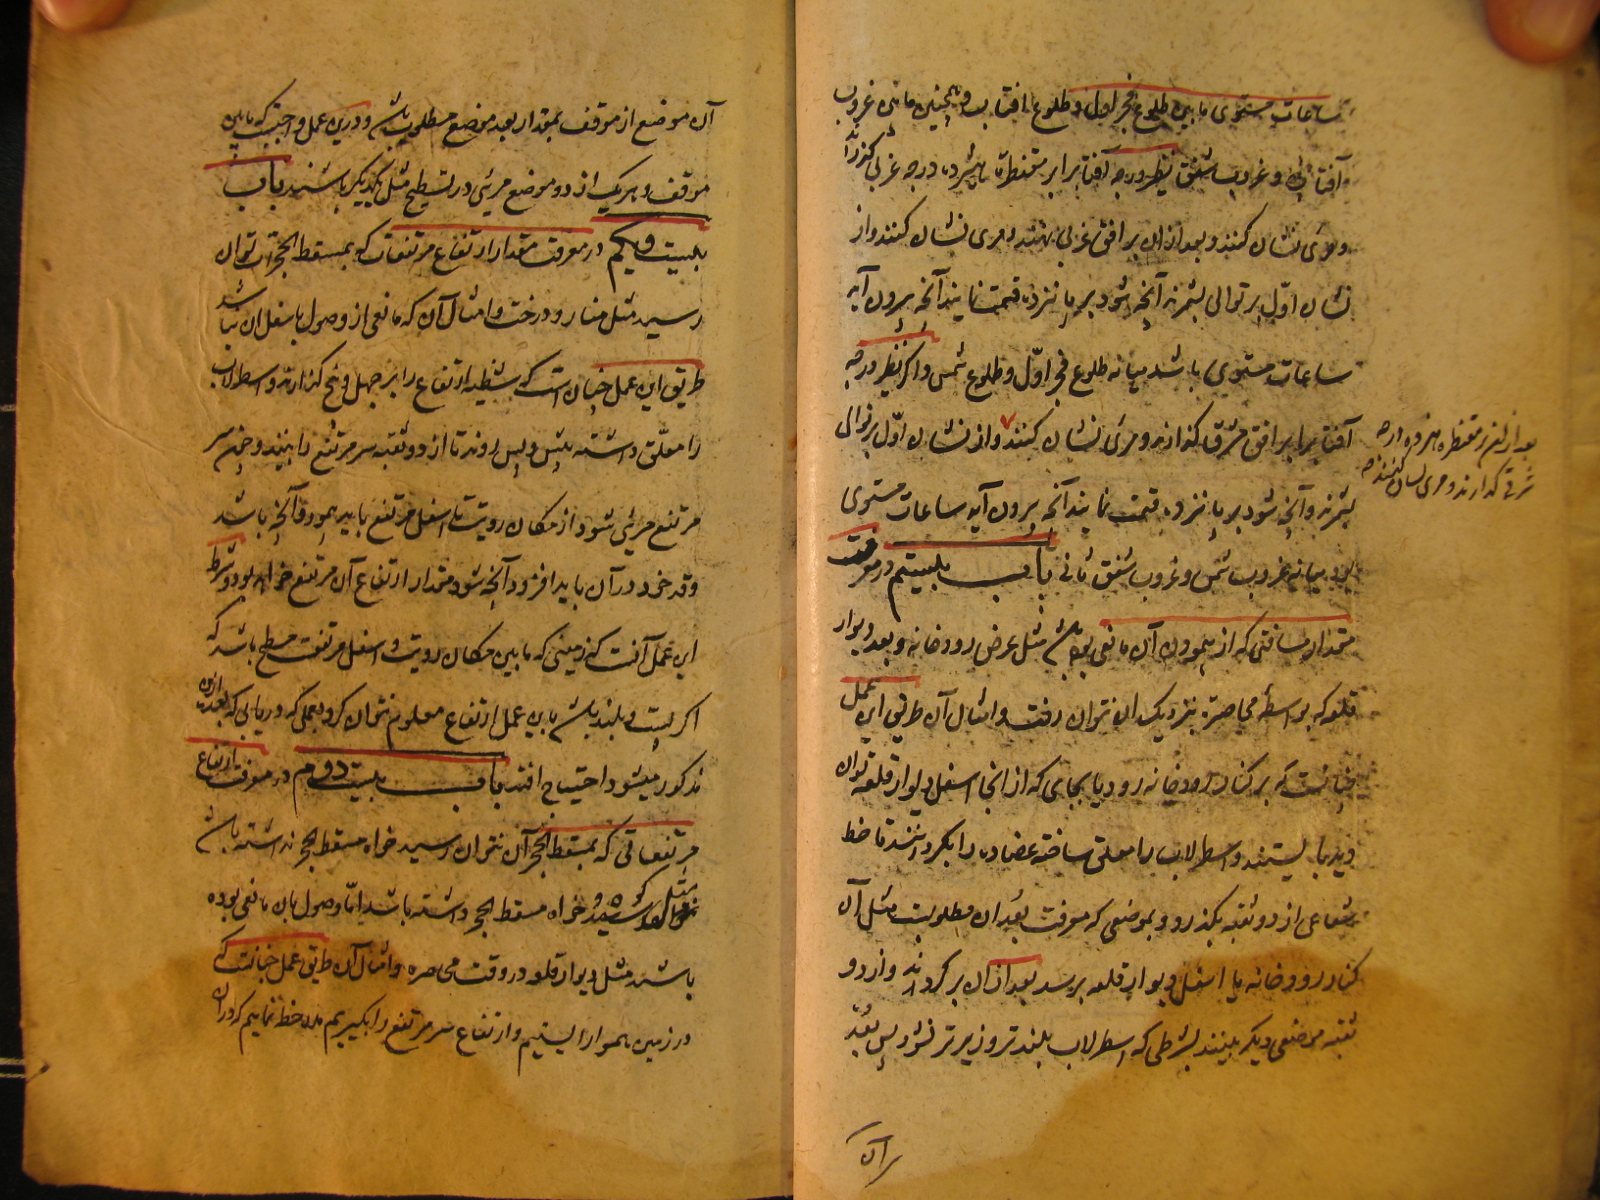 ساعات مستوی مابین طلوع فجر اول و طلوع افتاب و همچنین مابین غروب
آفتاب و غروب شفق نظیر درجه آفتاب را بر مقنطره هیژده درجه غربی گذراند
و مری نشان کنند و بعد از ان بر افق غربی نهند و مری نشان کنند و از
نشان اوّل بر توالی بشمرند آنچه شود بر پانزده قسمت نمایند آنچه بیرون آید
ساعات مستوی باشد میانه طلوع فجر اوّل و طلوع شمس و اگر نظیر درجه
آفتاب را بر افق مشرق گذارند و مری نشان کنند و از نشان اوّل بر توالی
بشمرند و آنچه شود بر پانزده قسمت نمایند آنچه بیرون آید ساعات مستوی
بود میانه غروب شمس و غروب شفق ثانی باب بیستم در معرفت
مقدار مسافتی که از پیمودن آن مانعی بود مثل عرض رودخانه و بعد دیوار
قلعه که بواسطهٔ محاصره نزدیک ان نتوان رفت و امثال آن طریق این عمل
چنانست که بر کنار رودخانه رود یا بجای که از انجا اسفل دیوار قلعه توان
دید بایستند و اسطرلاب را معلق ساخته عضاده را بگردانند تا خط
شعاعی از دو ثقبه بگذرد و بموضعی که معرفت بُعد ان مطلوبست مثل آن
کنار رودخانه یا اسفل دیوار قلعه برسد بعد از ان بر گردند و از دو
ثقبه موضعی دیگر بینند بشرطی که اسطرلاب بلندتر و زیرتر نشود پس بُعد
بعد از ان بر مقنطره هیژده درجه
شرقی گذارند و مری نشان کنند
آن موضع از موقف بمقدار بعد موضع مطلوب باشد و درین عمل واجبست که مابین
موقف و هریک از دو موضع مرئی در تسطیح مثل یکدیگر باشند باب
بیست و یکم در معرفت مقدار ارتفاع مرتفعات که بمسقط الحجر آن توان
رسید مثل منار و درخت و امثال آن که مانعی از وصول باسفل ان نباشد
طریق این عمل چنان است که شظیه ارتفاع را بر چهل و پنج گذارند و اسطرلاب
را معلّق داشته پیش و پس روند تا از دو ثقبه سر مرتفع را بینند و چون سر
مرتفع مرئی شود از مکان رویت تا اسفل مرتفع باید پیمود و آنچه باشد
و قد خود در آن باید افزود آنچه شود مقدار ارتفاع آن مرتفع خواهد بود و شرط
این عمل آنست که زمینی که مابین مکان رویت و اسفل مرتفعست مسطح باشد که
اگر پست و بلند باشد باین عمل ارتفاع معلوم نتوان کرد و بعملی که در بابی که بعد ازین
مذکور میشود احتیاج افتد باب بیست و دوم در معرفت ارتفاع
مرتفعاتی که بمسقط الحجر آن نتوان رسید خواه مسقط الحجر نداشته باشد
مثل کوه و خواه مسقط الحجر داشته باشد امّا وصول بان مانعی بوده
باشد مثل دیوار قلعه در وقت محاصره و امثال آن طریق عمل چنانست که
در زمین هموار ایستیم و ارتفاع سر مرتفع را بگیریم ملاحظه نماییم که در ان